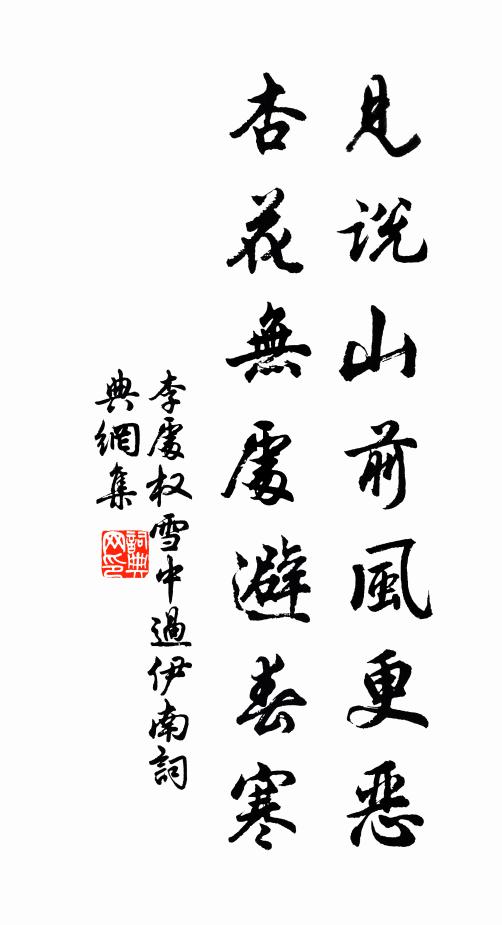 見説山前風更恶
杏花無處避春寒
李處权雪中過伊南詞
典網集
詞典
网印